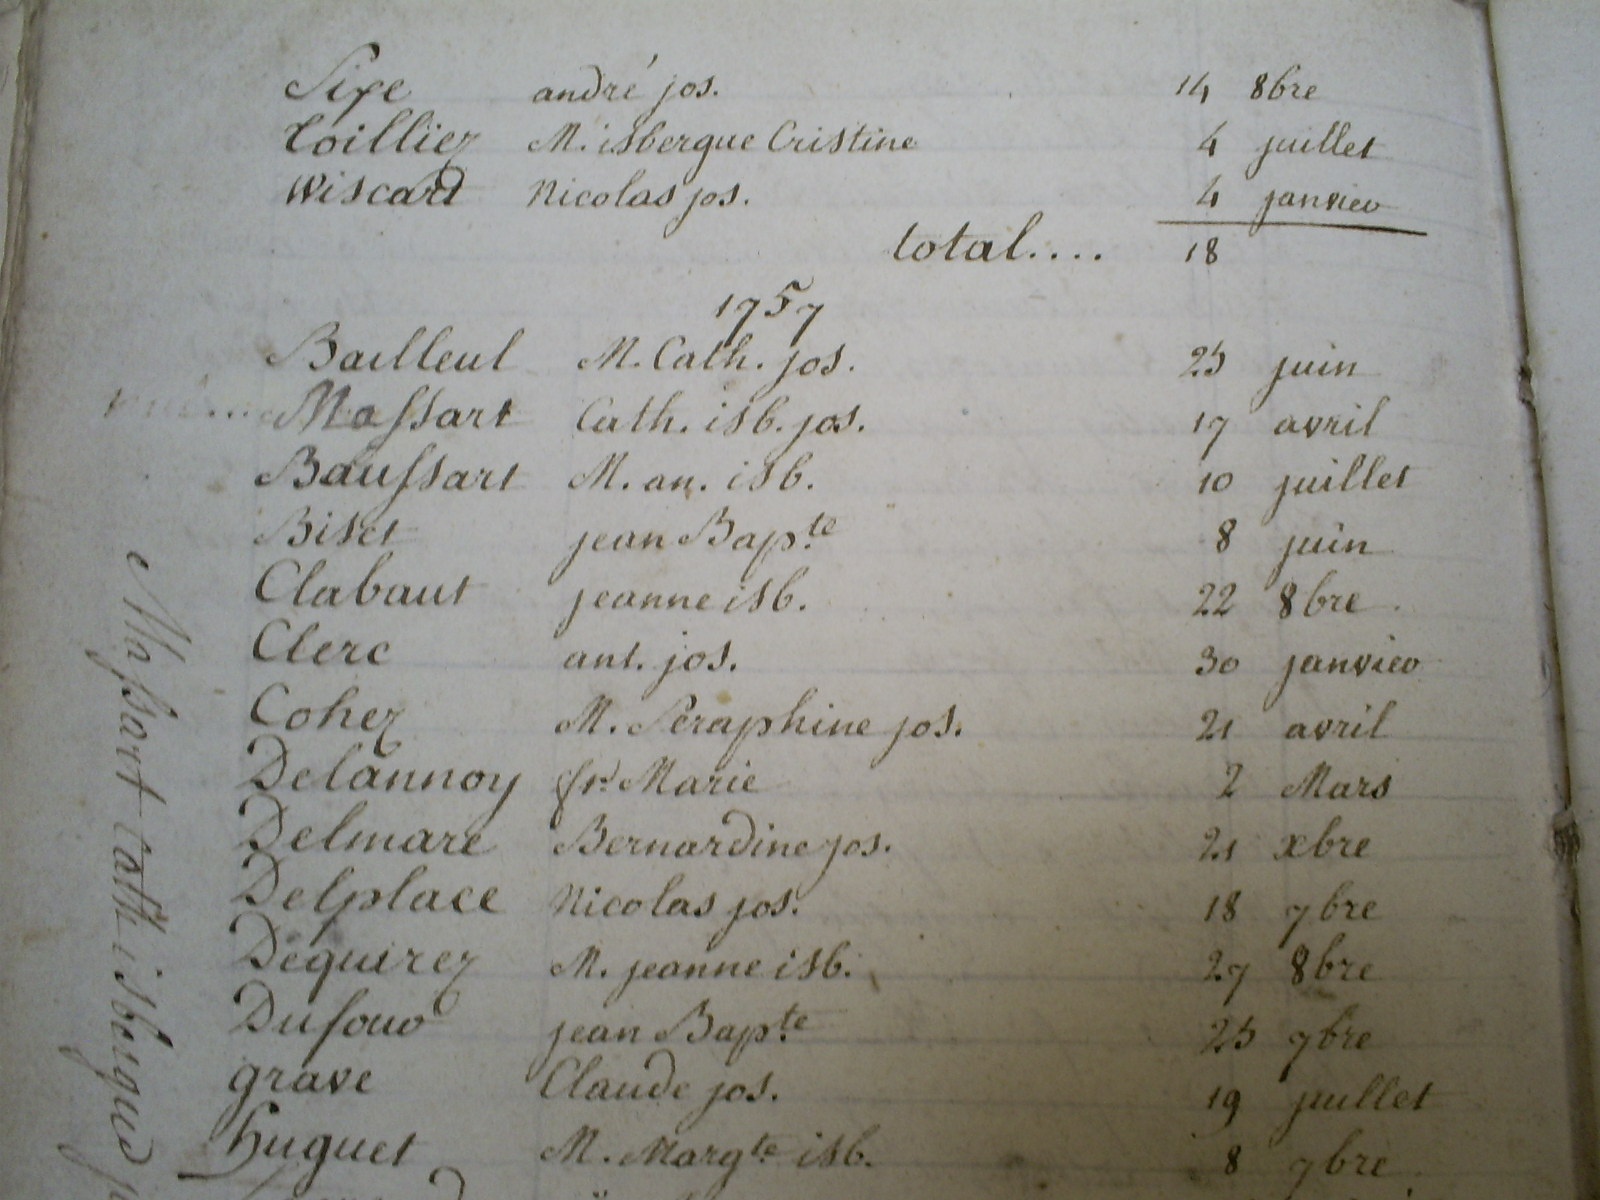 Sixe andré jos. 14 8bre
Coilliez M. isbergue Cristine 4 juillet
Wiscart Nicolas jos. 4 janvier
total.... 18
1757
Bailleul M. Cath. jos. 25 juin
Massart Cath. isb. jos. 17 avril
Baussart M. an. isb. 10 juillet
Biset jean Bapte 8 juin
Clabaut jeanne isb. 22 8bre
Clerc ant. jos. 30 janvier
Cohez M. Seraphine jos. 21 avril
Delannoy fr. Marie 2 Mars
Delmare Bernardine jos. 21 xbre
Delplace Nicolas jos. 18 7bre
Dequirez M. jeanne isb. 27 8bre
Dufour jean Bapte 25 7bre
grave Claude jos. 19 juillet
huguet M. Margte isb. 8 7bre
Massart Cath isbergue